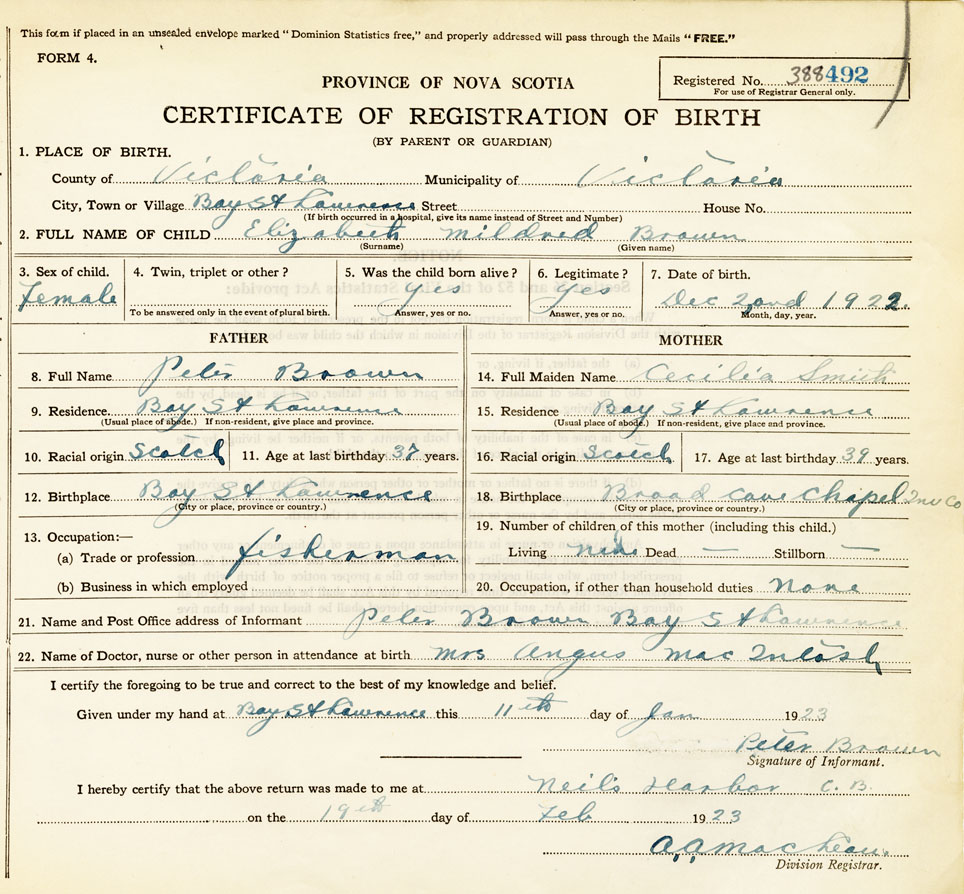 This form if placed in an unsealed envelope marked "Dominion Statistics free," and properly addressed will pass through the Mails "FREE."
FORM 4.
Registered No. 388492
For use of Registrar General only.
PROVINCE OF NOVA SCOTIA
CERTIFICATE OF REGISTRATION OF BIRTH
(BY PARENT OR GUARDIAN)
1. PLACE OF BIRTH.
County of Victoria Municipality of Victoria
City, Town or Village Bay St Lawrence Street House No.
(If birth occurred in a hospital, give its name instead of Street and Number)
2. FULL NAME OF CHILD Elizabeth Mildred Brown
(Surname) (Given name)
3. Sex of child. 4. Twin, triplet or other? 5. Was the child born alive? 6. Legitimate? 7. Date of birth.
Female yes yes Dec 22nd 1922.
To be answered only in the event of plural birth. Answer, yes or no. Answer, yes or no. Month, day, year.
FATHER MOTHER
8. Full Name Peter Brown 14. Full Maiden Name Cecilia Smith
9. Residence. Bay St Lawrence 15. Residence Bay St Lawrence
(Usual place of abode.) If non-resident, give place and province. (Usual place of abode.) If non-resident, give place and province.
10. Racial origin Scotch 11. Age at last birthday 37 years. 16. Racial origin Scotch 17. Age at last birthday 39 years.
12. Birthplace Bay St Lawrence 18. Birthplace Broad Cove Chapel Inv Co
(City or place, province or country.) (City or place, province or country.)
13. Occupation:— 19. Number of children of this mother (including this child.)
(a) Trade or profession fisherman Living nine Dead — Stillborn —
(b) Business in which employed 20. Occupation, if other than household duties None
21. Name and Post Office address of Informant Peter Brown Bay St Lawrence
22. Name of Doctor, nurse or other person in attendance at birth Mrs Angus Mac Intosh
I certify the foregoing to be true and correct to the best of my knowledge and belief.
Given under my hand at Bay St Lawrence this 11th day of Jan 1923
Peter Brown
Signature of Informant.
I hereby certify that the above return was made to me at Neil's Harbor C.B.
on the 19th day of Feb 1923
A.A. MacLean.
Division Registrar.